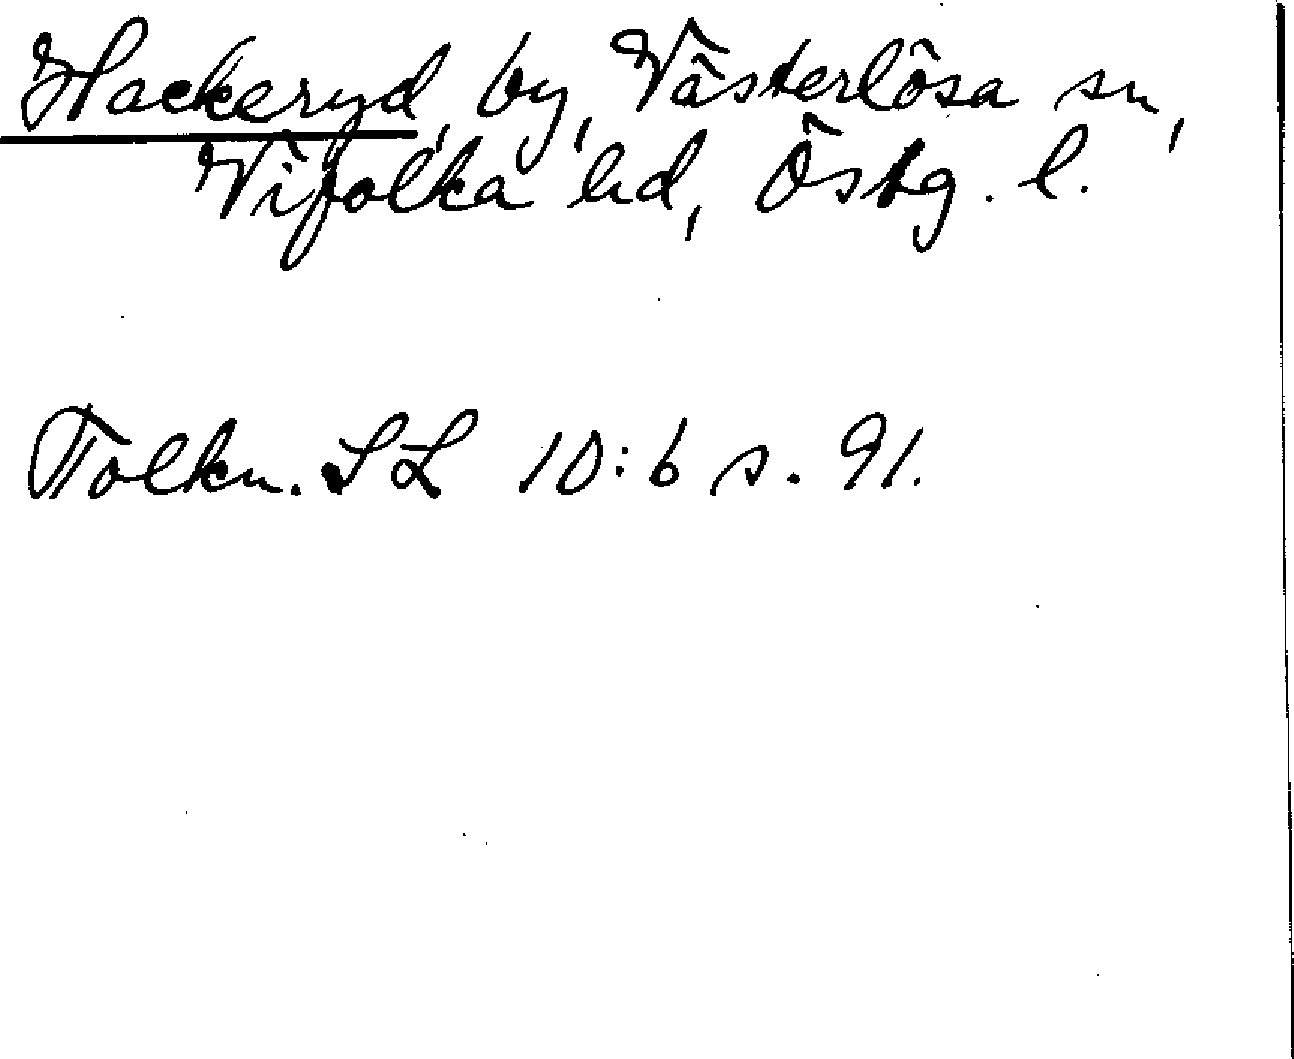 Hackeryd, by, Västerlösa sn,
Vifolka hd, Östg. l.
Tolkn. SL 10:6 s. 91.